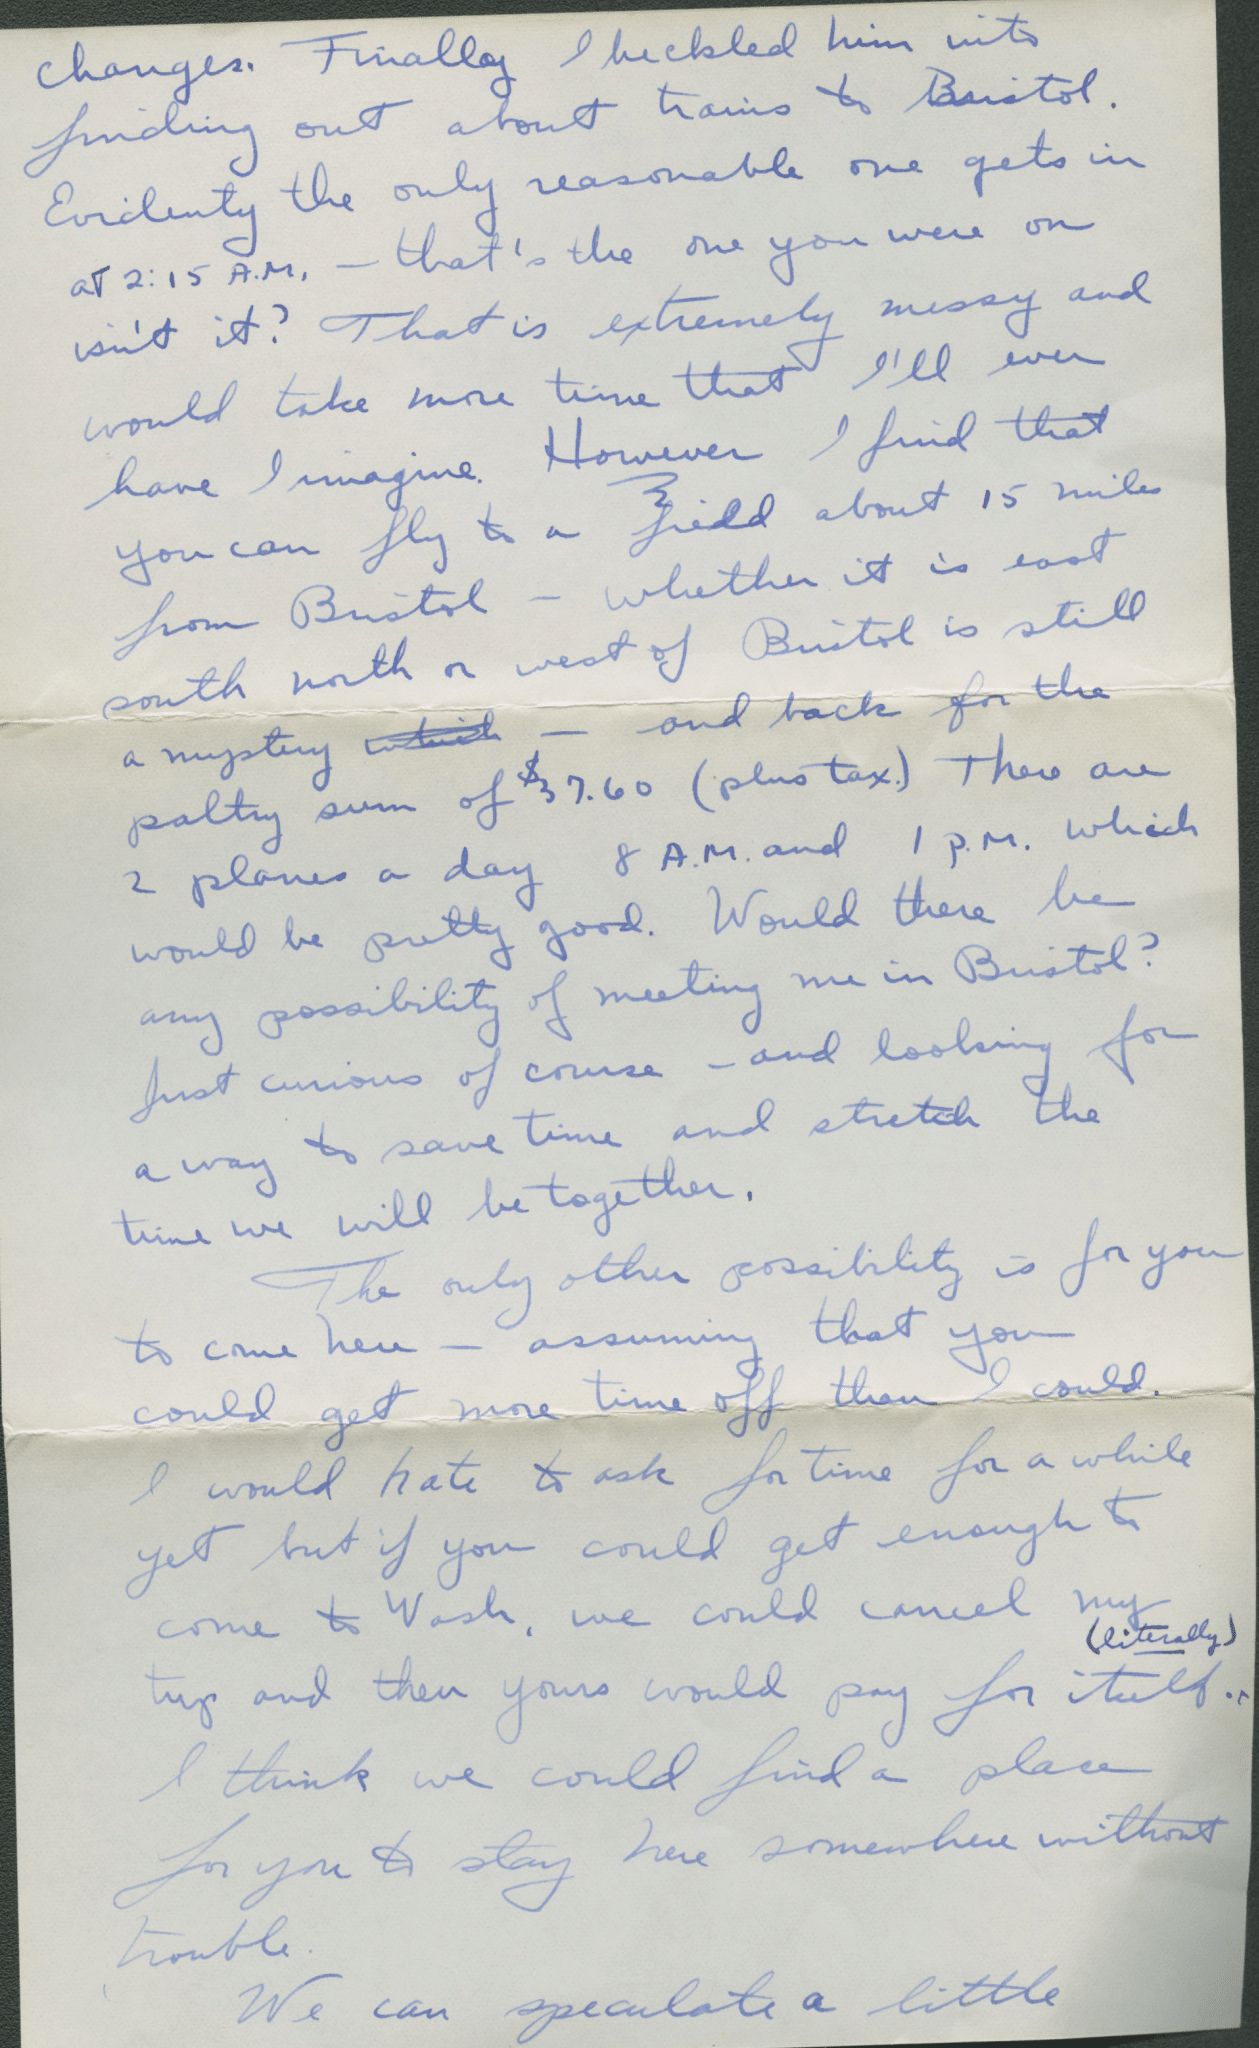 changes. Finally I heckled him into
finding out about trains to Bristol.
Evidenty the only reasonable one gets in
at 2:15 A.M. – that's the one you were on
isn't it? That is extremely messy and
would take more time that I'll ever
have I imagine. However I find that
you can fly to a field about 15 miles
from Bristol – whether it is east
south north or west of Bristol is still
a mystery which – and back for the
paltry sum of $37.60 (plus tax.) There are
2 planes a day 8 A.M. and 1 p.m. which
would be pretty good. Would there be
any possibility of meeting me in Bristol?
Just curious of course – and looking for
a way to save time and stretch the
time we will be together.
The only other possibility is for you
to come here – assuming that you
could get more time off than I could.
I would hate to ask for time for a while
yet but if you could get enough to
come to Wash. we could cancel my
(literally)
trip and then yours would pay for itself..
I think we could find a place
for you to stay here somewhere without
trouble.
We can speculate a little